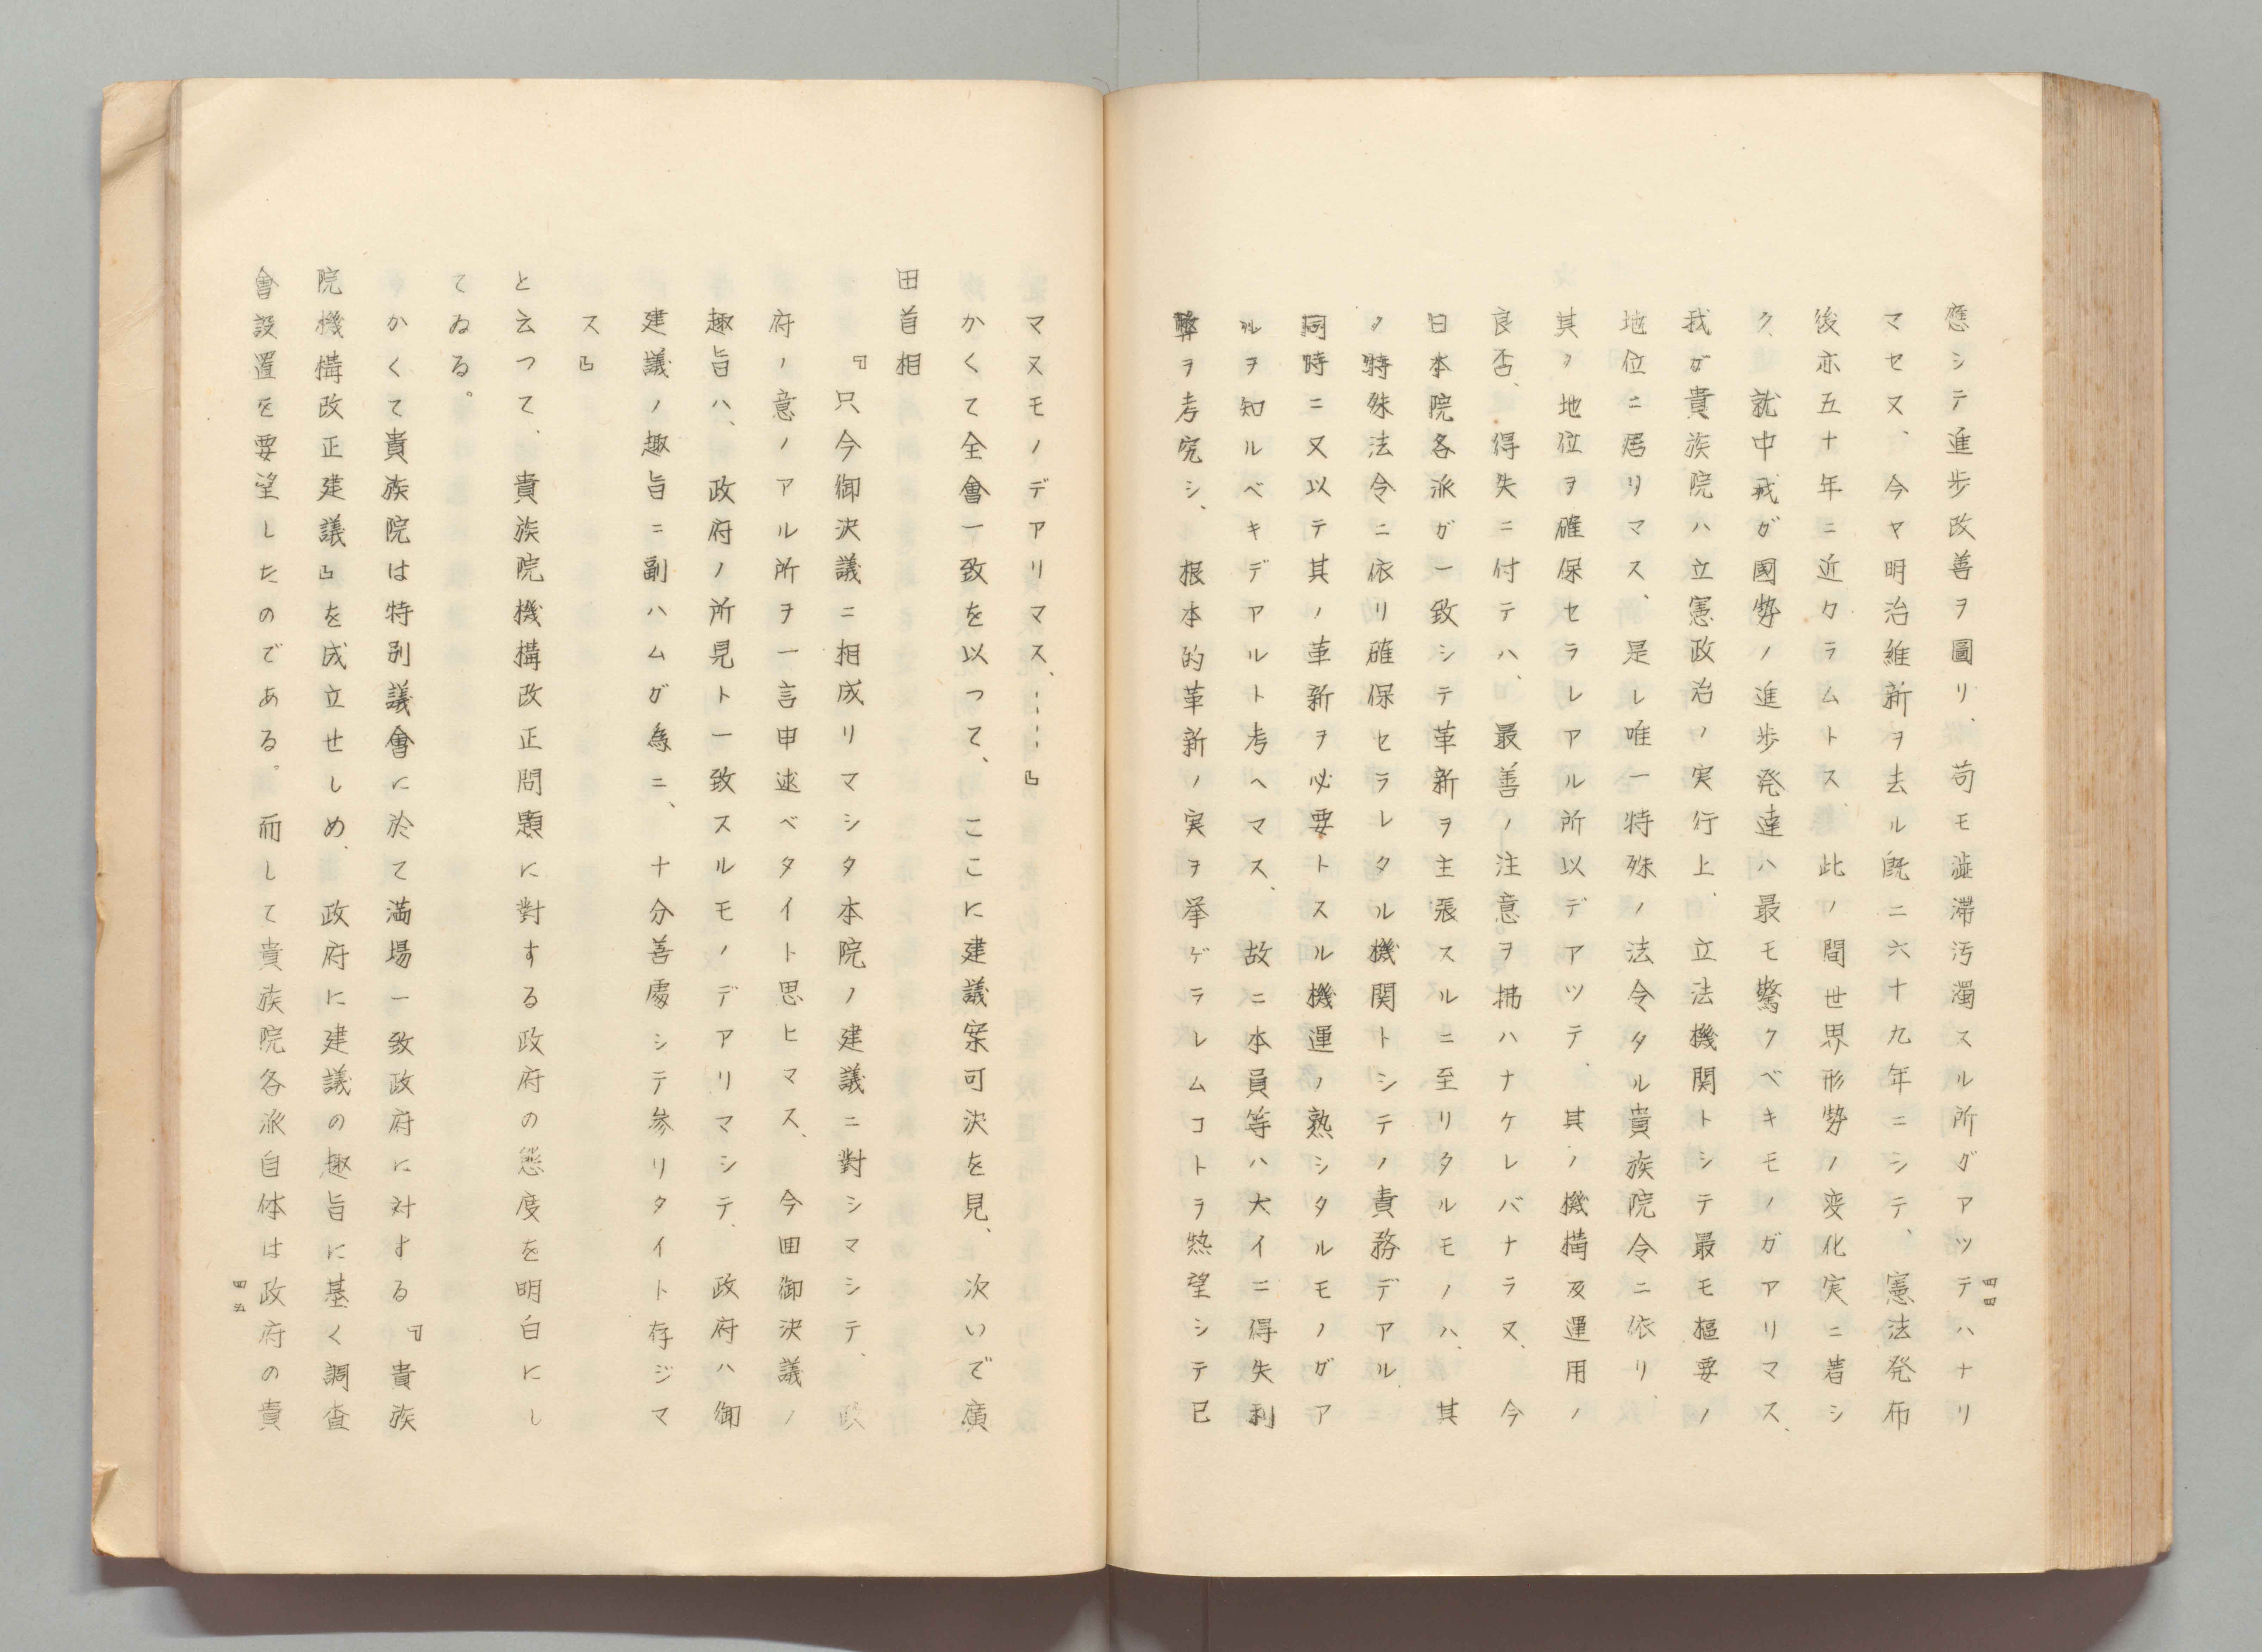 應シテ進歩改善ヲ圖リ、苟モ澁滞汚濁スル所ガアツテハナリ
マセヌ、今ヤ明治維新ヲ去ル既ニ六十九年ニシテ、憲法発布
後亦五十年ニ近クラムトス、此ノ間世界形勢ノ変化実ニ著シ
ク、就中我ガ國勢ノ進歩発達ハ最モ驚クベキモノガアリマス、
我ガ貴族院ハ立憲政治ノ実行上、立法機関トシテ最モ樞要ノ
地位ニ居リマス、是レ唯一特殊ノ法令タル貴族院令ニ依リ、
其ノ地位ヲ確保セラレアル所以デアツテ、其ノ機構及運用ノ
良否、得失ニ付テハ、最善ノ注意ヲ拂ハナケレバナラヌ、今
日本院各派ガ一致シテ革新ヲ主張スルニ至リタルモノハ、其
ノ特殊法令ニ依リ確保セラレタル機関トシテノ責務デアル、
同時ニ又以テ其ノ革新ヲ必要トスル機運ノ熟シタルモノガア
ルヲ知ルベキデアルト考ヘマス、故ニ本員等ハ大イニ得失利
弊ヲ考究シ、根本的革新ノ実ヲ挙ゲラレムコトヲ熱望シテ已
四四
マヌモノデアリマス、……』
かくて全會一致を以つて、ここに建議案可決を見、次いで廣
田首相
『只今御決議ニ相成リマシタ本院ノ建議ニ對シマシテ、政
府ノ意ノアル所ヲ一言申述ベタイト思ヒマス、今囬御決議ノ
趣旨ハ、政府ノ所見ト一致スルモノデアリマシテ、政府ハ御
建議ノ趣旨ニ副ハムガ為ニ、十分善處シテ参リタイト存ジマ
ス』
と云つて、貴族院機構改正問題に對する政府の態度を明白にし
てゐる。
かくて貴族院は特別議會に於て満場一致政府に対する『貴族
院機構改正建議』を成立せしめ、政府に建議の趣旨に基く調査
會設置を要望したのである。而して貴族院各派自体は政府の貴
四五